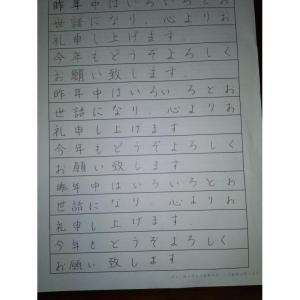 昨年中はいろいろとお
世話になり、心よりお
礼申し上げます.
今年もどうぞよろしく
お願い致します.
昨年中はいろいろとお
世話になり、心よりお
礼申し上げます
今年もどうぞよろしく
お願い致します.
昨年中はいろいろとお
世話になり、心よりお
礼申し上げます.
今年もどうぞよろしく
お願い致します